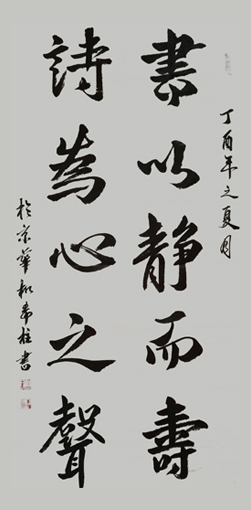 丁酉年之夏月
書以静而壽
詩為心之聲
於京華
書